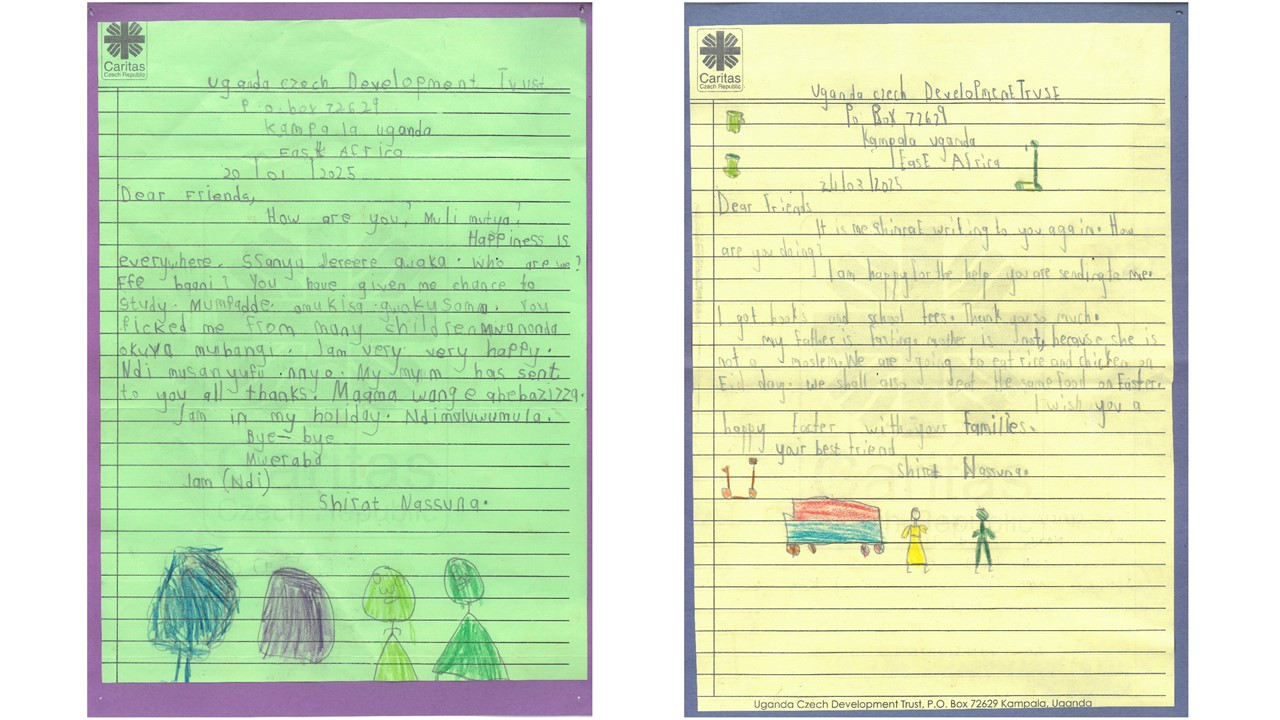 Caritas
Czech Republic
Uganda czech Development Trust
P.o.box 72629
Kampala uganda
East Africa
20/01/2025
Dear Friends,
How are you? Muli mutya?
Happiness is
everywhere. SSanyu lereere awaka. Who are we?
Ffe baani? You have given me chance to
study. Mumpadde omukisa gwokusoma. You
ficked me from many children
okuva mubangi. Iam very very happy.
Ndi musanyufu nnyo. My mum has sent
to you all thanks. Maama wange abebazizza.
Iam in my holiday. Ndimuluwumula.
Bye-bye
Mweraba
Iam (Ndi)
Shirat Nassuna.
Caritas
Czech Republic
Uganda czech DevelopmentTrust
Po Box 72629
Kampala uganda
East Africa
24/03/2025
Dear Friends
It is me shinrat writing to you again. How
are you doing?
I am happy for the help you are sending to me.
I got books and school fees. Thank you so much.
my father is fasting. mother is not, because she is
not a moslem. We are going to eat rice and chicken on
Eid day. we shall also eat the same food on Easter.
I wish you a
happy Easter with your families.
your best friend
Shirat Nassuna.
Uganda Czech Development Trust, P.O. Box 72629 Kampala, Uganda